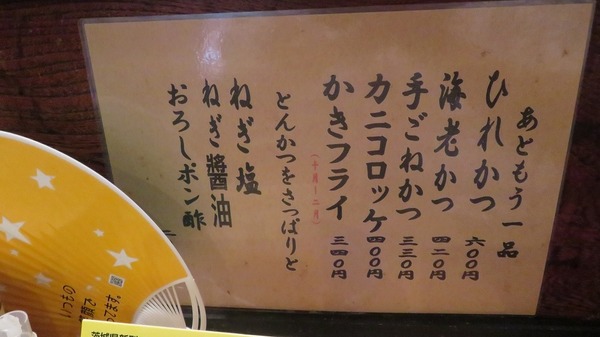 あともう一品
ひれかつ 六〇〇円
海老かつ 四二〇円
手ごねかつ 三三〇円
カニコロッケ 四〇〇円
かきフライ 三四〇円
(十月～二月)
とんかつをさっぱりと
ねぎ塩
ねぎ醬油
おろしポン酢
いつもの
てます。